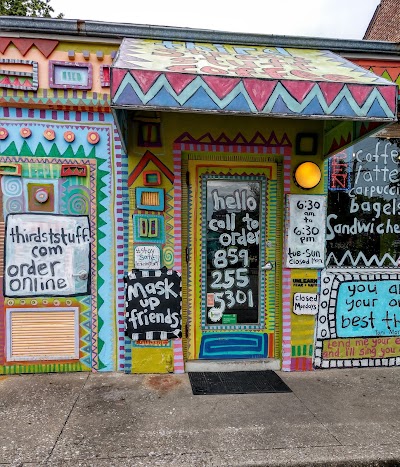 third
street
stuff
thirdststuff.
com
order
online
Mask
up
friends
hello
call to
order
859
255
5301
6:30
am
to
6:30
pm
tue-sun
closed Mon
closed
Mondays
coffee
Latte
cappuccino
bagels
Sandwiches
UNLEARN
you a
your o
best th
Lend me your e
and I'll sing you